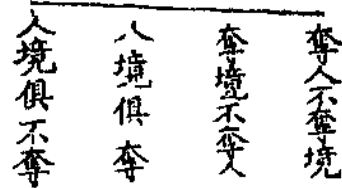 奪人不奪境
奪境不奪人
人境俱奪
人境俱不奪